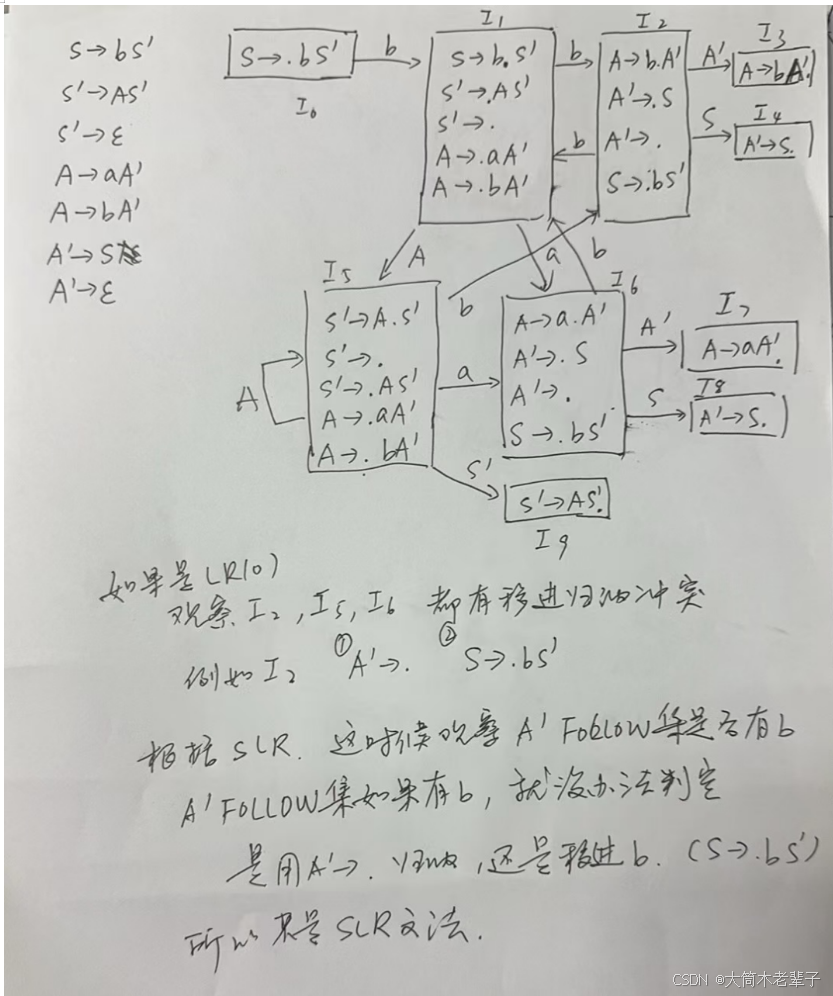 S→bS'
S'→AS'
S'→ε
A→aA'
A→bA'
A'→S
A'→ε
S→.bS'
I₀
b
I₁
S→b.S'
S'→.AS'
S'→.
A→.aA'
A→.bA'
b
b
I₂
A→b.A'
A'→.S
A'→.
S→.bS'
A'
I₃
A→bA'.
S
I₄
A'→S.
A
a
b
b
I₅
S'→A.S'
S'→.
S'→.AS'
A→.aA'
A→.bA'
A
a
I₆
A→a.A'
A'→.S
A'→.
S→.bS'
A'
I₇
A→aA'.
S
I8
A'→S.
S'
S'→AS'.
I9
如果是LR(0)
观察I₂,I₅,I₆ 都有移进归约冲突
例如I₂ ①A'→. ②S→.bS'
根据SLR.这时候观察A' Follow集是否有b
A'FOLLOW集如果有b,就没办法判定
是用A'→.归约,还是移进b.(S→.bS')
所以 是SLR文法.
CSDN @大筒木老辈子